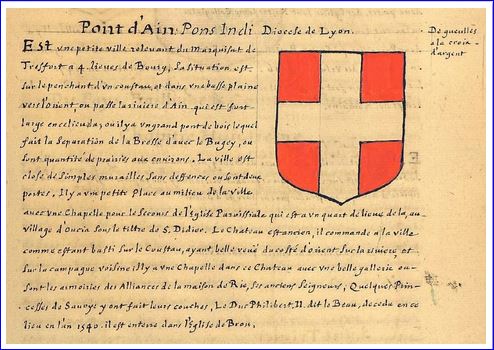 Pont d'Ain: Pons Indi Diocese de Lyon.
De gueulles
a la croix
d'argent
Est vne petite ville relevant du Marquisat de
Tresfort a 4. lieues de Bourg, La situation est
sur le penchant d'un coustau, et dans vne basse plaine
vers l'orient ou passe la riuiere d'Ain qui est fort
large en ce lieu da; ou il y a vn grand pont de bois lequel
fait la separation de la Bresse d'avec le Bugey, ou
sont quantité de prairies aux environs. La ville est
close de simples murailles sans deffences, ou sont deux
portes. Il y a vn petite Place au milieu de la ville
avec vne Chapelle pour le secours de l'Eglise Paroissiale qui est a vn quart de lieue de la, au
village d'oucia sous le tiltre de S. Didier. Le Chateau est ancien, il commande a la ville
comme estant basti sur le Coustau, ayant belle veue du costé d'orient sur la riuiere, et
sur la campagne voisine il y a vne Chapelle dans ce Chateau avec vne belle gallerie ou
sont les armoiries des Alliances de la maison de Rie, ses anciens seigneurs; Quelques Prin-
cesses de Savoye y ont fait leurs couches, Le Duc Philibert, II. dit le Beau, deceda en ce
lieu en l'an 1540. il est enterre dans l'Eglise de Brou,